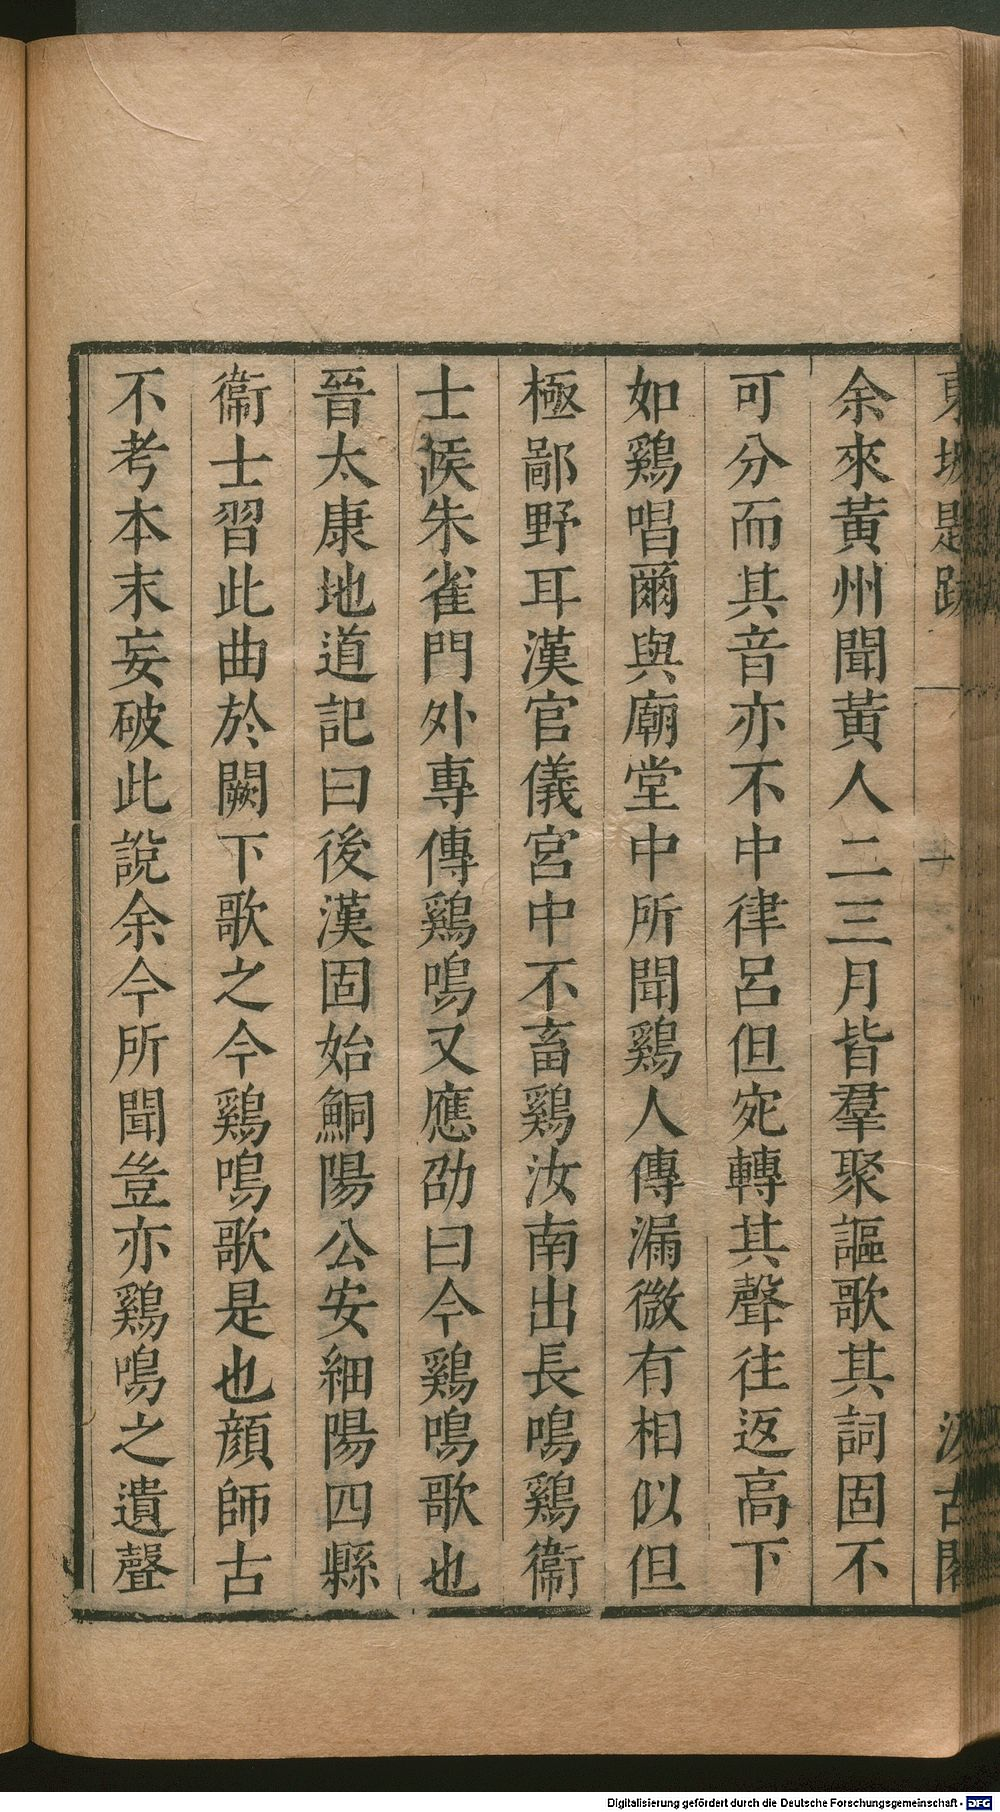 東坡題跋
一
汲古閣
余來黃州聞黃人二三月皆羣聚謳歌其詞固不
可分而其音亦不中律呂但宛轉其聲往返高下
如鷄唱爾與廟堂中所聞鷄人傳漏微有相似但
極鄙野耳漢官儀宮中不畜鷄汝南出長鳴鷄衞
士候朱雀門外專傳鷄鳴又應劭曰今鷄鳴歌也
晉太康地道記曰後漢固始鮦陽公安細陽四縣
衞士習此曲於闕下歌之今鷄鳴歌是也顏師古
不考本末妄破此說余今所聞豈亦鷄鳴之遺聲
Digitalisierung gefördert durch die Deutsche Forschungsgemeinschaft - DFG